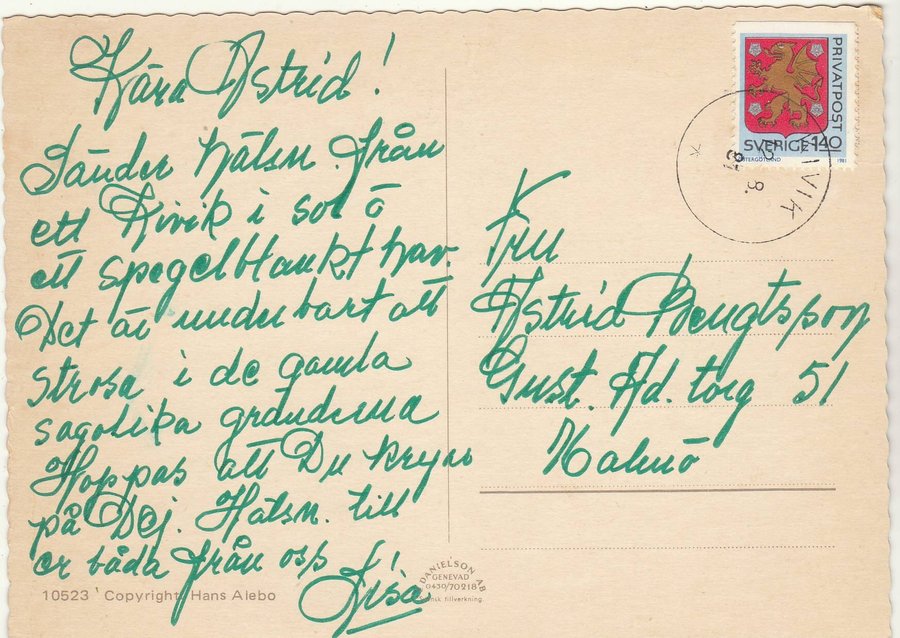 Kära Astrid!
Sänder hälsn. från
ett Kivik i sol o
ett spegelblankt hav.
Det är underbart att
strosa i de gamla
sagolika gränderna
Hoppas att Du kryar
på Dej. Hälsn. till
er båda från oss
Lisa
PRIVATPOST
SVERIGE 140
ÖSTERGÖTLAND 1981
KIVIK
8.
81
Fru
Astrid Bengtsson
Gust. Ad. torg 51
Malmö
DANIELSON AB
GENEVAD
0430/70218
Svensk tillverkning.
10523 Copyright: Hans Alebo